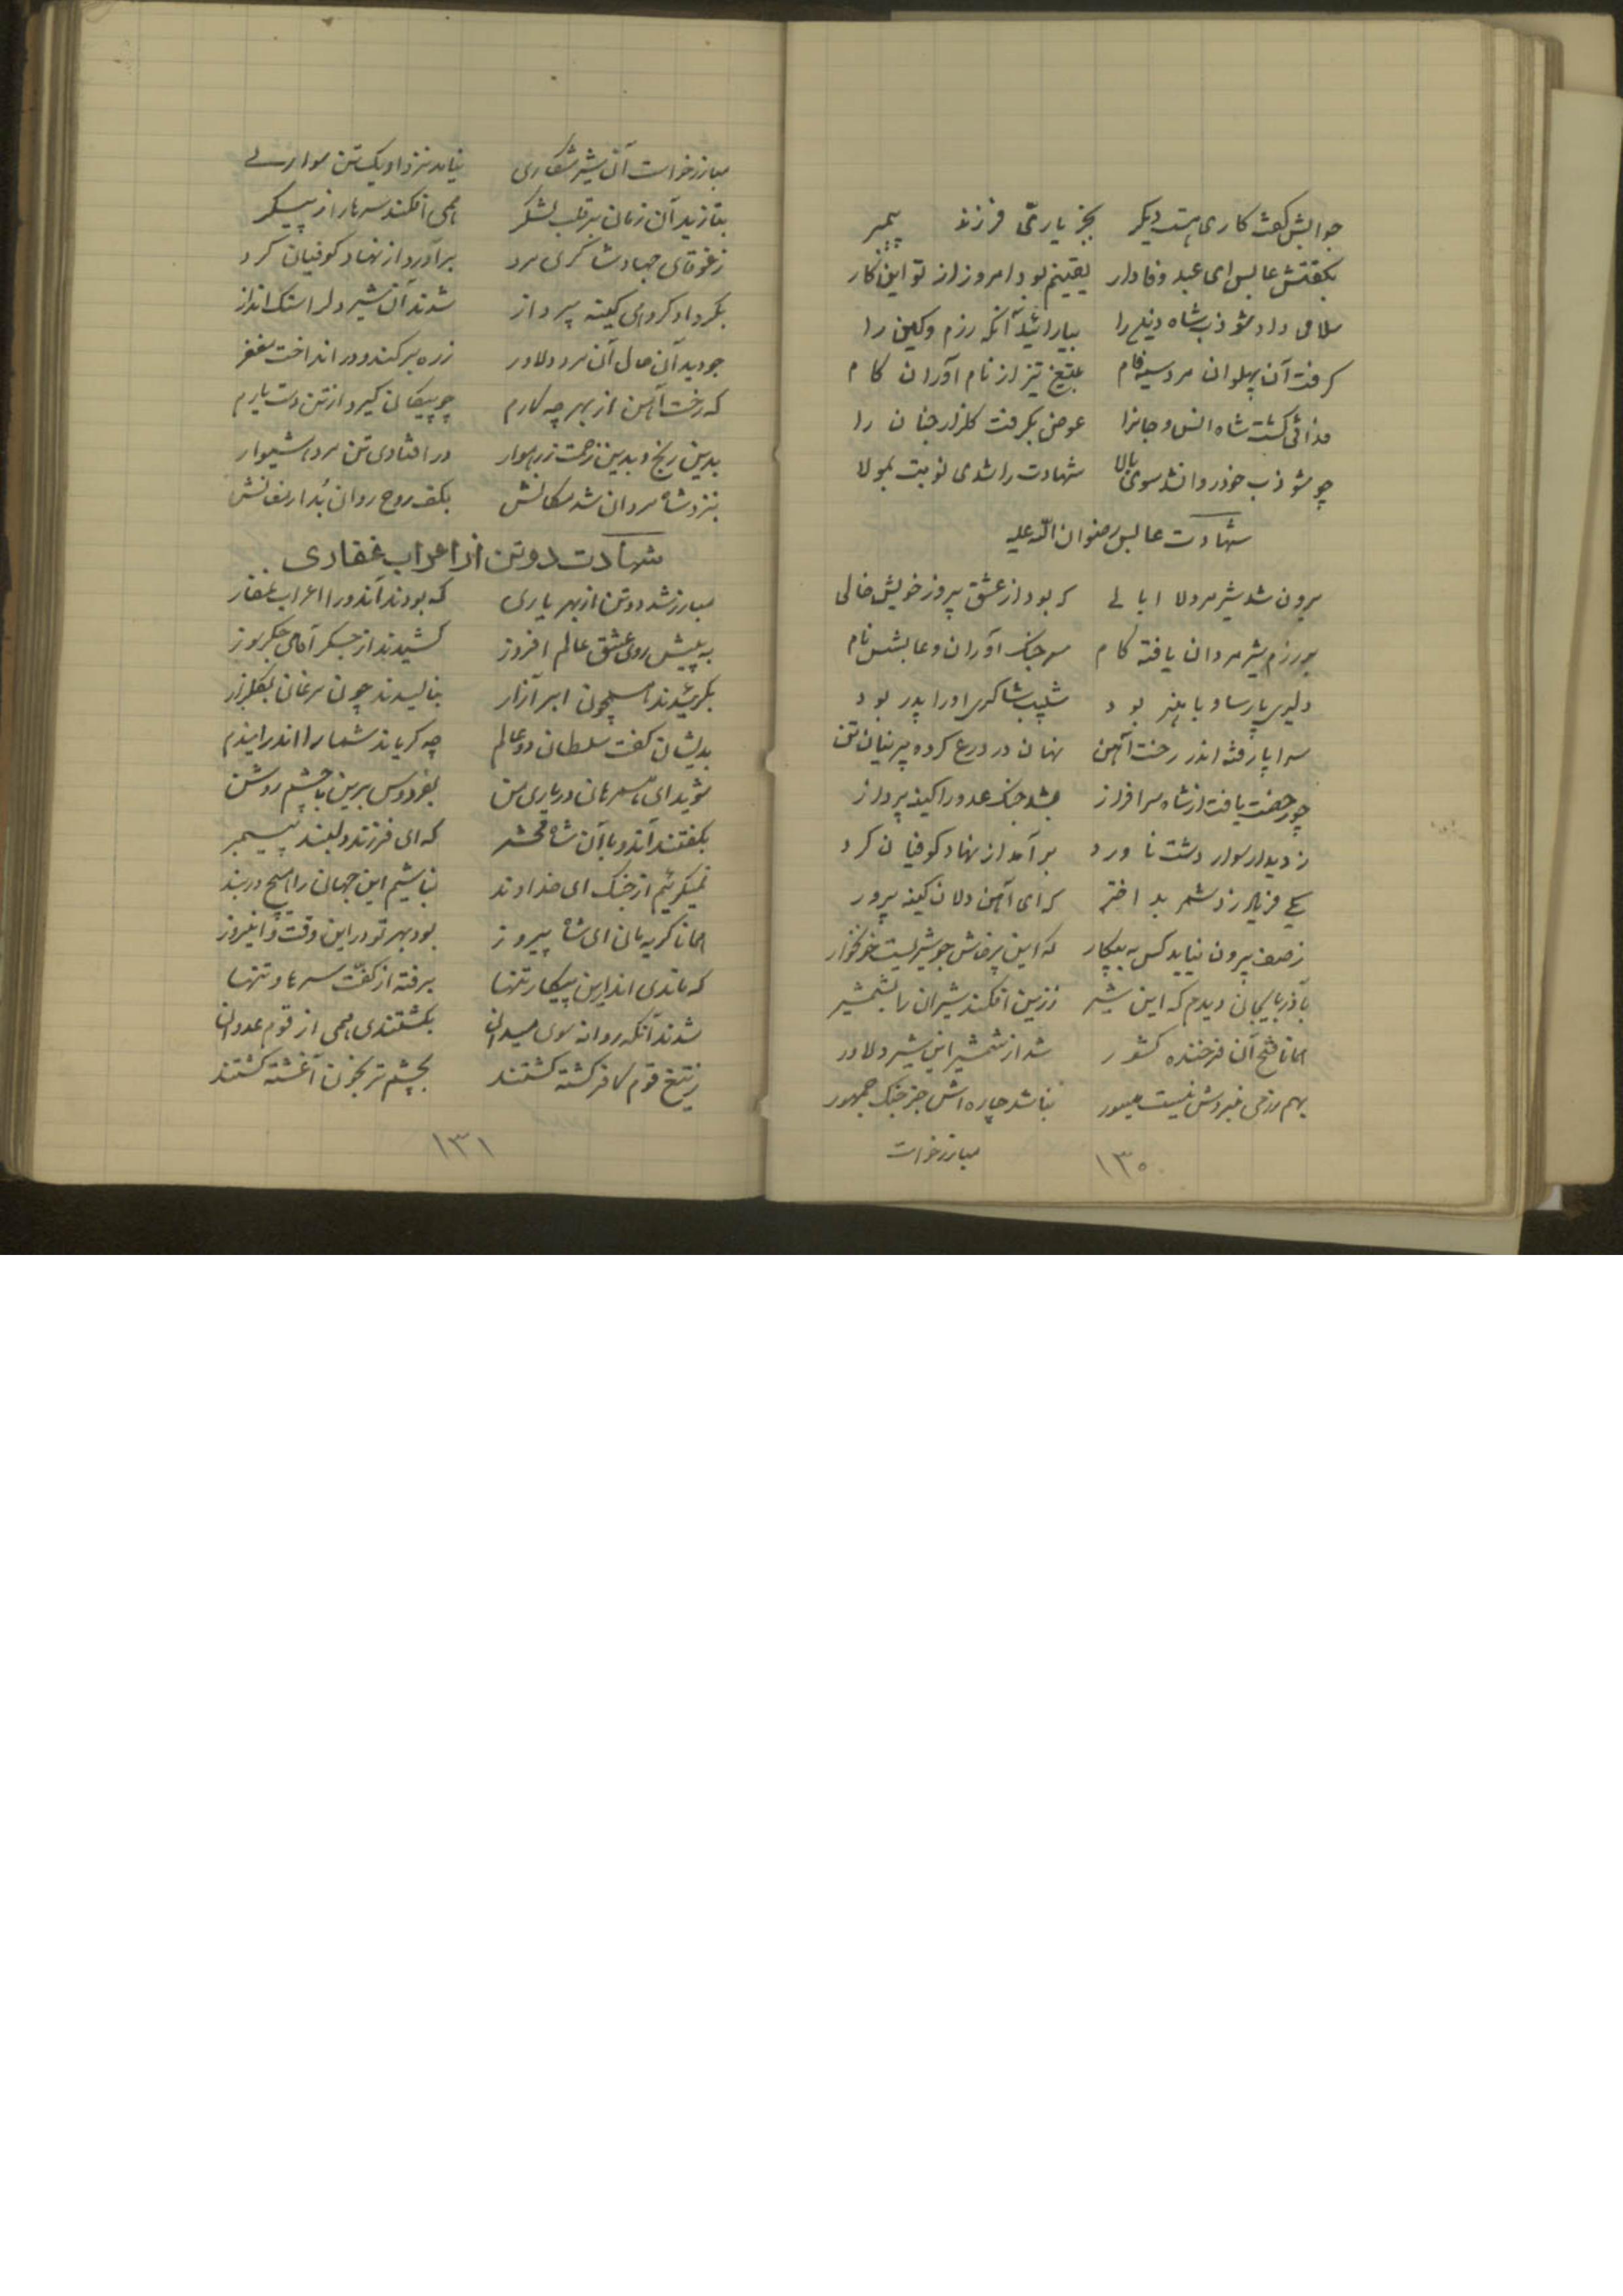 جوابش گفت کاری هست دیگر بجز یاری فرزند پیمبر
بگفتش عابس ای عبد وفادار یقینم بود امروز از تو این کار
سلامی داد شوذب شاه دین را بیارائید آنگه رزم و کین را
گرفت آن پهلوان مرد سیه فام بتیغ تیز از نام آوران کام
فدائی گشت شاه انس و جانرا عوض بگرفت گلزار جنان را
چو شوذب خود روانشد سوی بالا شهادت را شدی نوبت بمولا
شهادت عابس رضوان الله علیه
برون شد شیر مرد لا ابالی که بود از عشق پیروز خویش خالی
بورزم شیر مردان یافته کام سر جنگ آوران و عابشس نام
دلیری پارسا و با هنر بود شبیب شاکری او را پدر بود
سراپا رفته اندر رخت آهن نهان در درع کرده پرنیان تن
چو رخصت یافت از شاه سرافراز بشد جنگ عدو را کینه پرداز
ز دیدار سوار دشت ناورد برآمد از نهاد کوفیان گرد
یکی فریاد زد شمر بد اختر که ای آهن دلان کینه پرور
ز صف بیرون نیاید کس به پیکار که این پرخاش جو شیریست خونخوار
بآذربایجان دیدم که این شیر ز زین افکند شیران را بشمشیر
همانا فتح آن فرخنده کشور شد از شمشیر این شیر دلاور
بهم رزمی نبردش نیست میسور نباشد چاره اش جز جنگ جمهور
مبارز خواست
۱۳۰
مبارز خواست آن شیر شکاری نیامد نزد او یک تن سواری
بتازید آن زمان بر قلب لشگر همی افکند سرها را ز پیکر
ز غوغای جهاد شاکری مرد برآورد از نهاد کوفیان گرد
بگرد او گروهی کینه پرداز شدند آن شیر دل را سنگ انداز
چو دید آن حال آن مرد دلاور زره بر کند و دور انداخت مغفر
که رخت آهن از بهر چه دارم چو پیکان گیرد از تن دست یارم
بدین رنج و بدین زحمت ز رهوار در افتادی تن مرد هشیوار
بنزد شاه مردان شد مکانش بکف روح روان بد ارمغانش
شهادت دو تن از اعراب غفاری
مبارز شد دو تن از بهر یاری که بودند آندو را اعراب غفار
به پیش روی عشق عالم افروز کشیدند از جگر آهی جگرسوز
بگرئیدند همچون ابر آزار بنالیدند چون مرغان بگلزار
بدیشان گفت سلطان دو عالم چه گریاند شما را اندر ایندم
شوید ای همرهان در یاری من بفردوس برین با چشم روشن
بگفتند آندو با آن شاه محشر که ای فرزند دلبند پیمبر
نمیگرئیم از جنگ ای خداوند نباشیم این جهان را هیچ در بند
همانا گریه مان ای شاه پیروز بود بهر تو در این وقت و اینروز
که ماندی اندرین پیکار تنها برفته از کفت سرها و تنها
شدند آنگه روانه سوی میدان بکشتندی همی از قوم عدوان
ز تیغ قوم کافر کشته گشتند بچشم تر بخون آغشته گشتند
۱۳۱